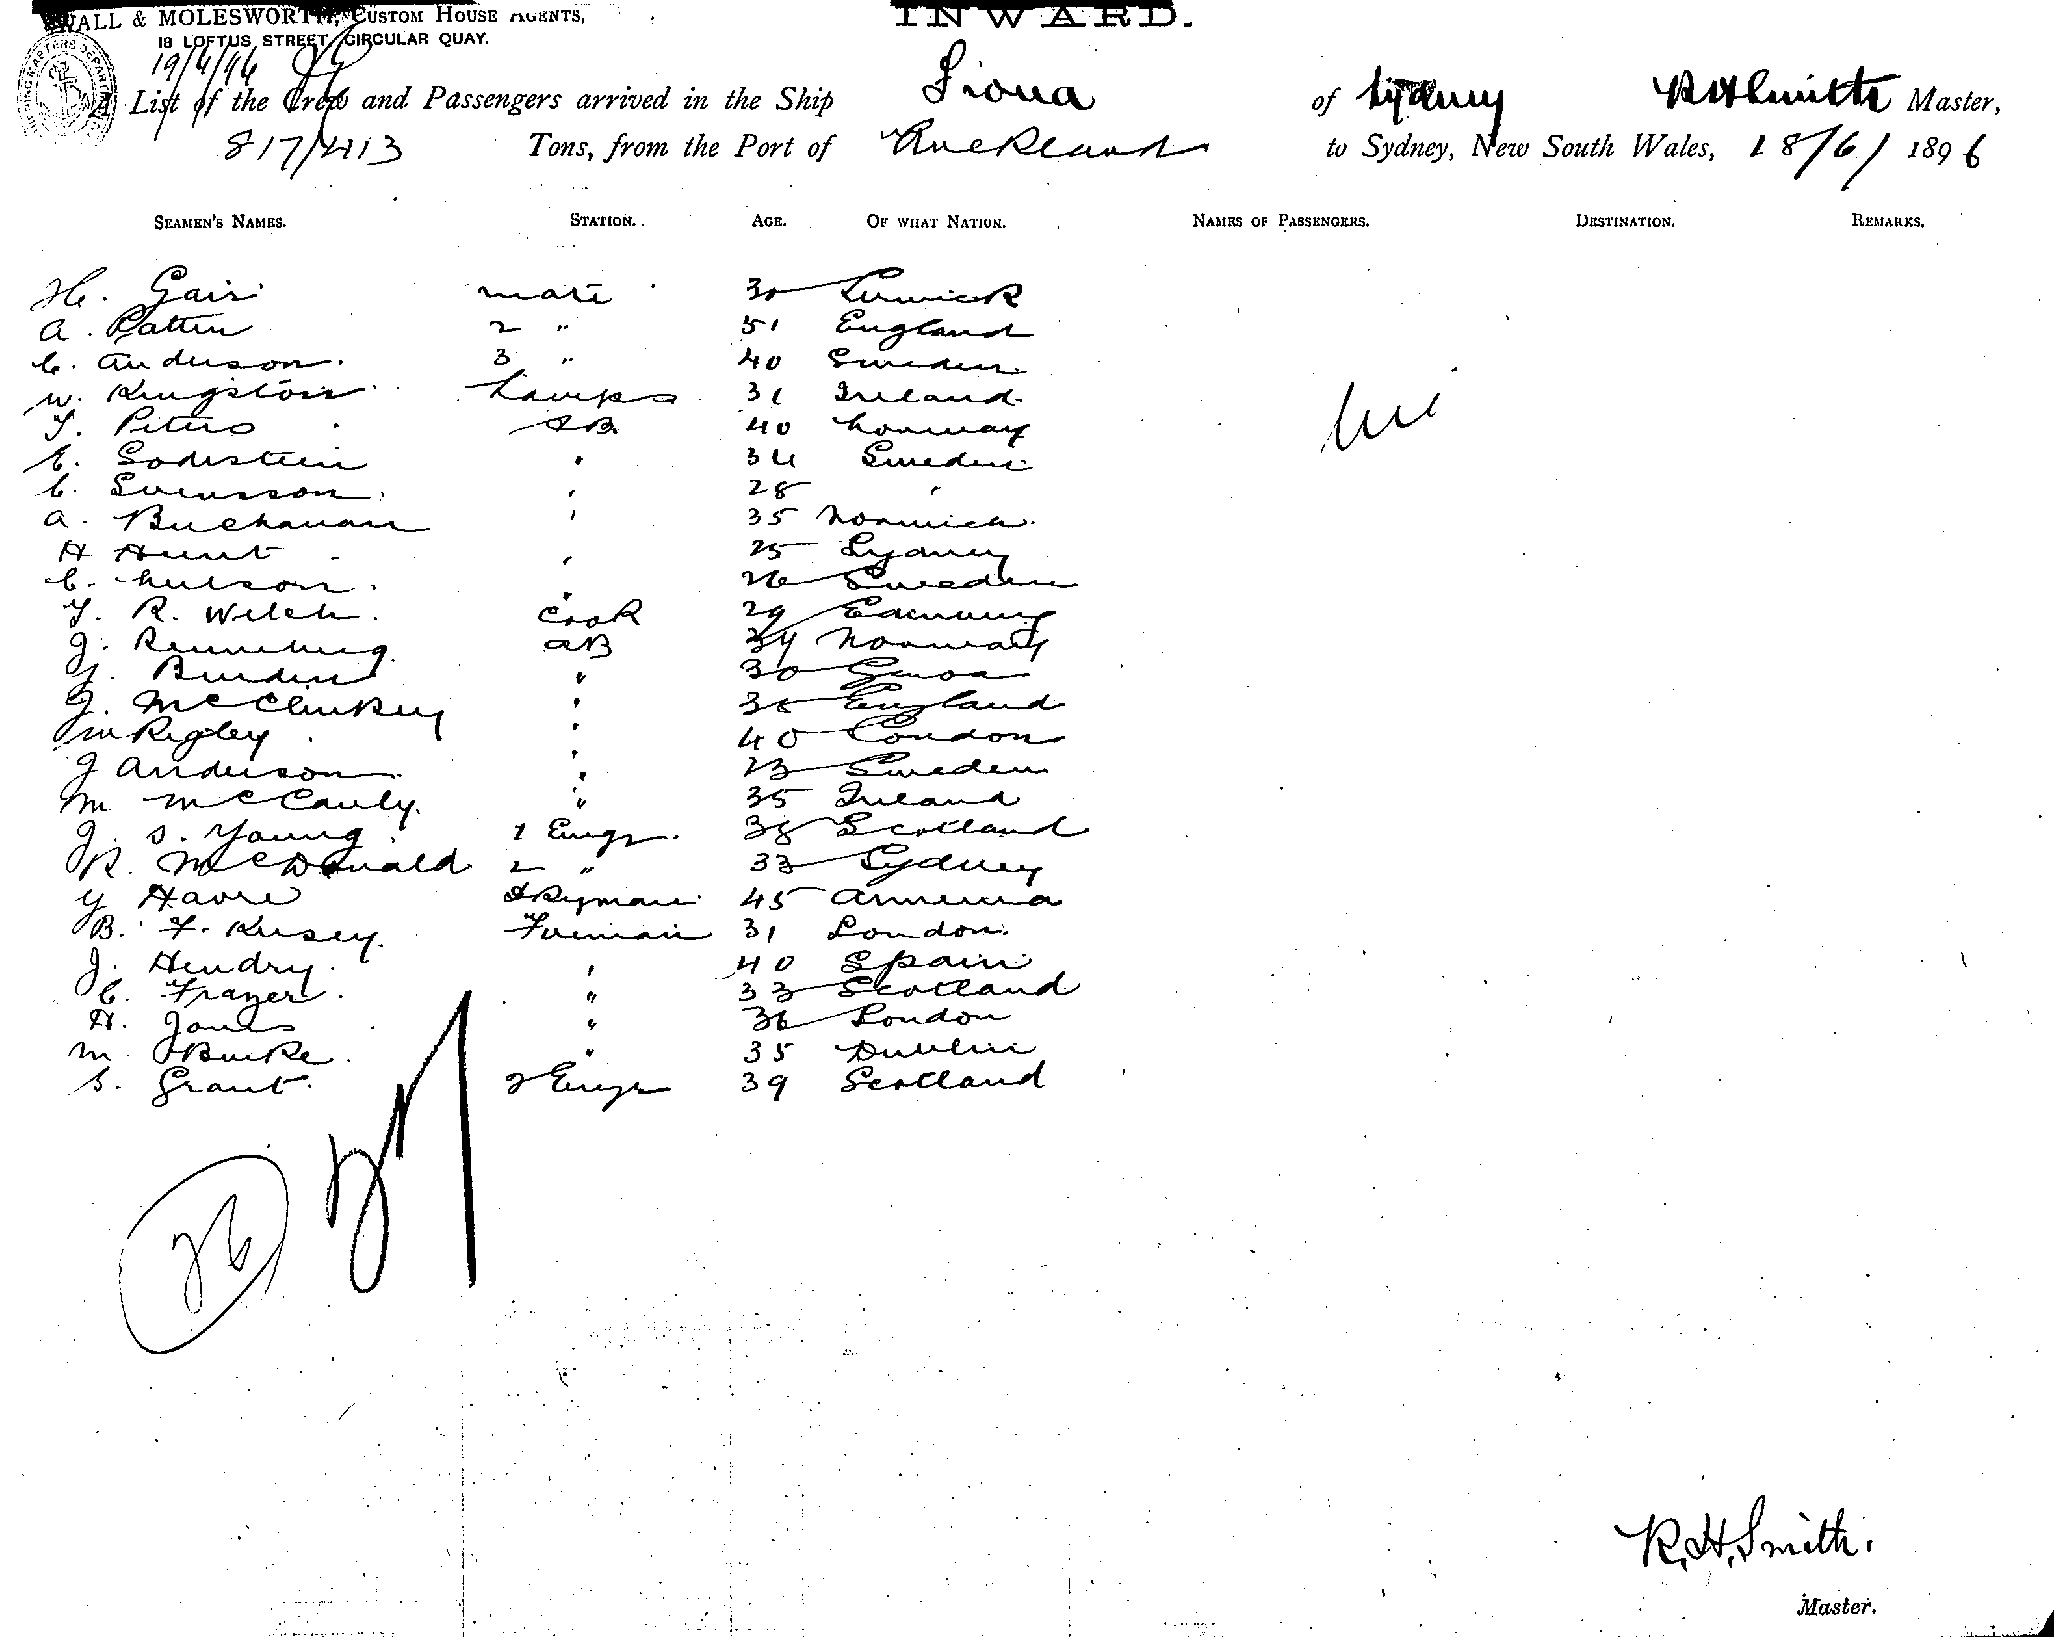 WALL & MOLESWORTH, CUSTOM HOUSE AGENTS,
18 LOFTUS STREET, CIRCULAR QUAY.
INWARD.
19/6/96
A List of the Crew and Passengers arrived in the Ship Fiona of Sydney R H Smith Master,
817/413 Tons, from the Port of Auckland to Sydney, New South Wales, 18/6/ 1896
SEAMEN'S NAMES. STATION. AGE. OF WHAT NATION. NAMES OF PASSENGERS. DESTINATION. REMARKS.
H. Gair mate 30 Lerwick
A. Patten 2 " 51 England
C. Anderson 3 " 40 Sweden
W. Kingston Lamps 31 Ireland
Peters AB 40 Norway
nil
Sweden
C. Svensson 28 "
A. Buchanan " 35
H Hunt " 25 Sydney
C. Nelson " 26 Sweden
T. R. Welch Cook 29
J. AB 34 Norway
" 30 Genoa
J. " England
Wm Rigley " 40 London
J Anderson " 23 Sweden
M McCauly " 35 Ireland
J. S. Young 1 Engr 38 Scotland
R. McDonald 2 " 33 Sydney
45
B. F. Kersey Fireman 31 London
J. Hendry " 40 Spain
C. Frazer " 33 Scotland
H. James " 36 London
M Burke " 35 Dublin
S. Grant 3 Engr 39 Scotland
26
R. H. Smith.
Master.